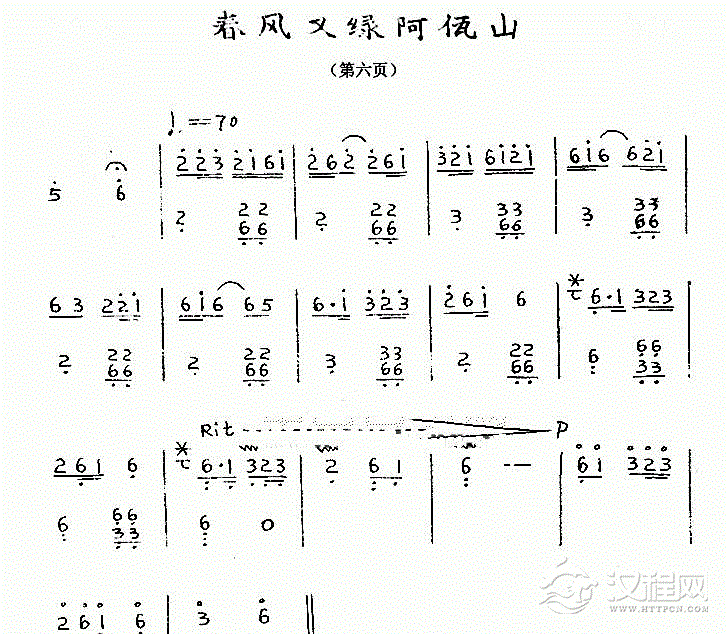 春风又绿阿佤山
(第六页)
♩.==70
5 6 | 223 2161 | 262 261 | 321 6121 | 616 621 |
2 22 66 | 2 22 66 | 3 33 66 | 3 33 66
63 221 | 616 65 | 6·1 323 | 261 6 | 6·1 323
2 22 66 | 2 22 66 | 3 33 66 | 2 22 66 | 6 66 33
Rit P
261 6 | 6·1 323 | 2 61 | 6 -- | 61 323 |
6 66 33 | 6 0
261 6 | 3 6 ‖
汉程网
WWW.HTTPCN.COM